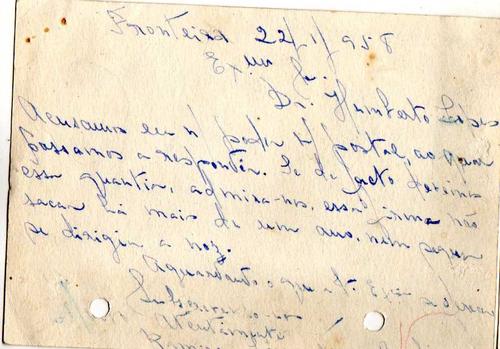 Fronteira 22/1/958
Exmo Sr.
Dr. Humberto Lopes
Acusamos em n/ poder s/ postal, ao qual
passamos a responder. Se de facto devemos
essa quantia, admira-nos, essa firma não
sacar há mais de um ano, nem sequer
se dirigir a nós.
Aguardando o que V. Exa se
Subscrevemo-nos
Atentamente